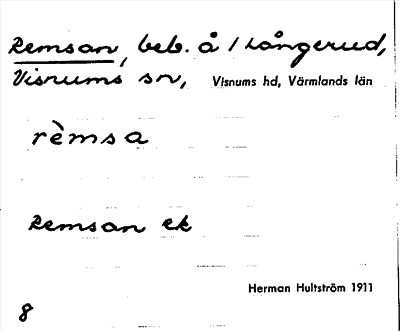 Remsan, beb. å / Långerud,
Visnums sn, Visnums hd, Värmlands län
rèmsa
Remsan ek
Herman Hultström 1911
8